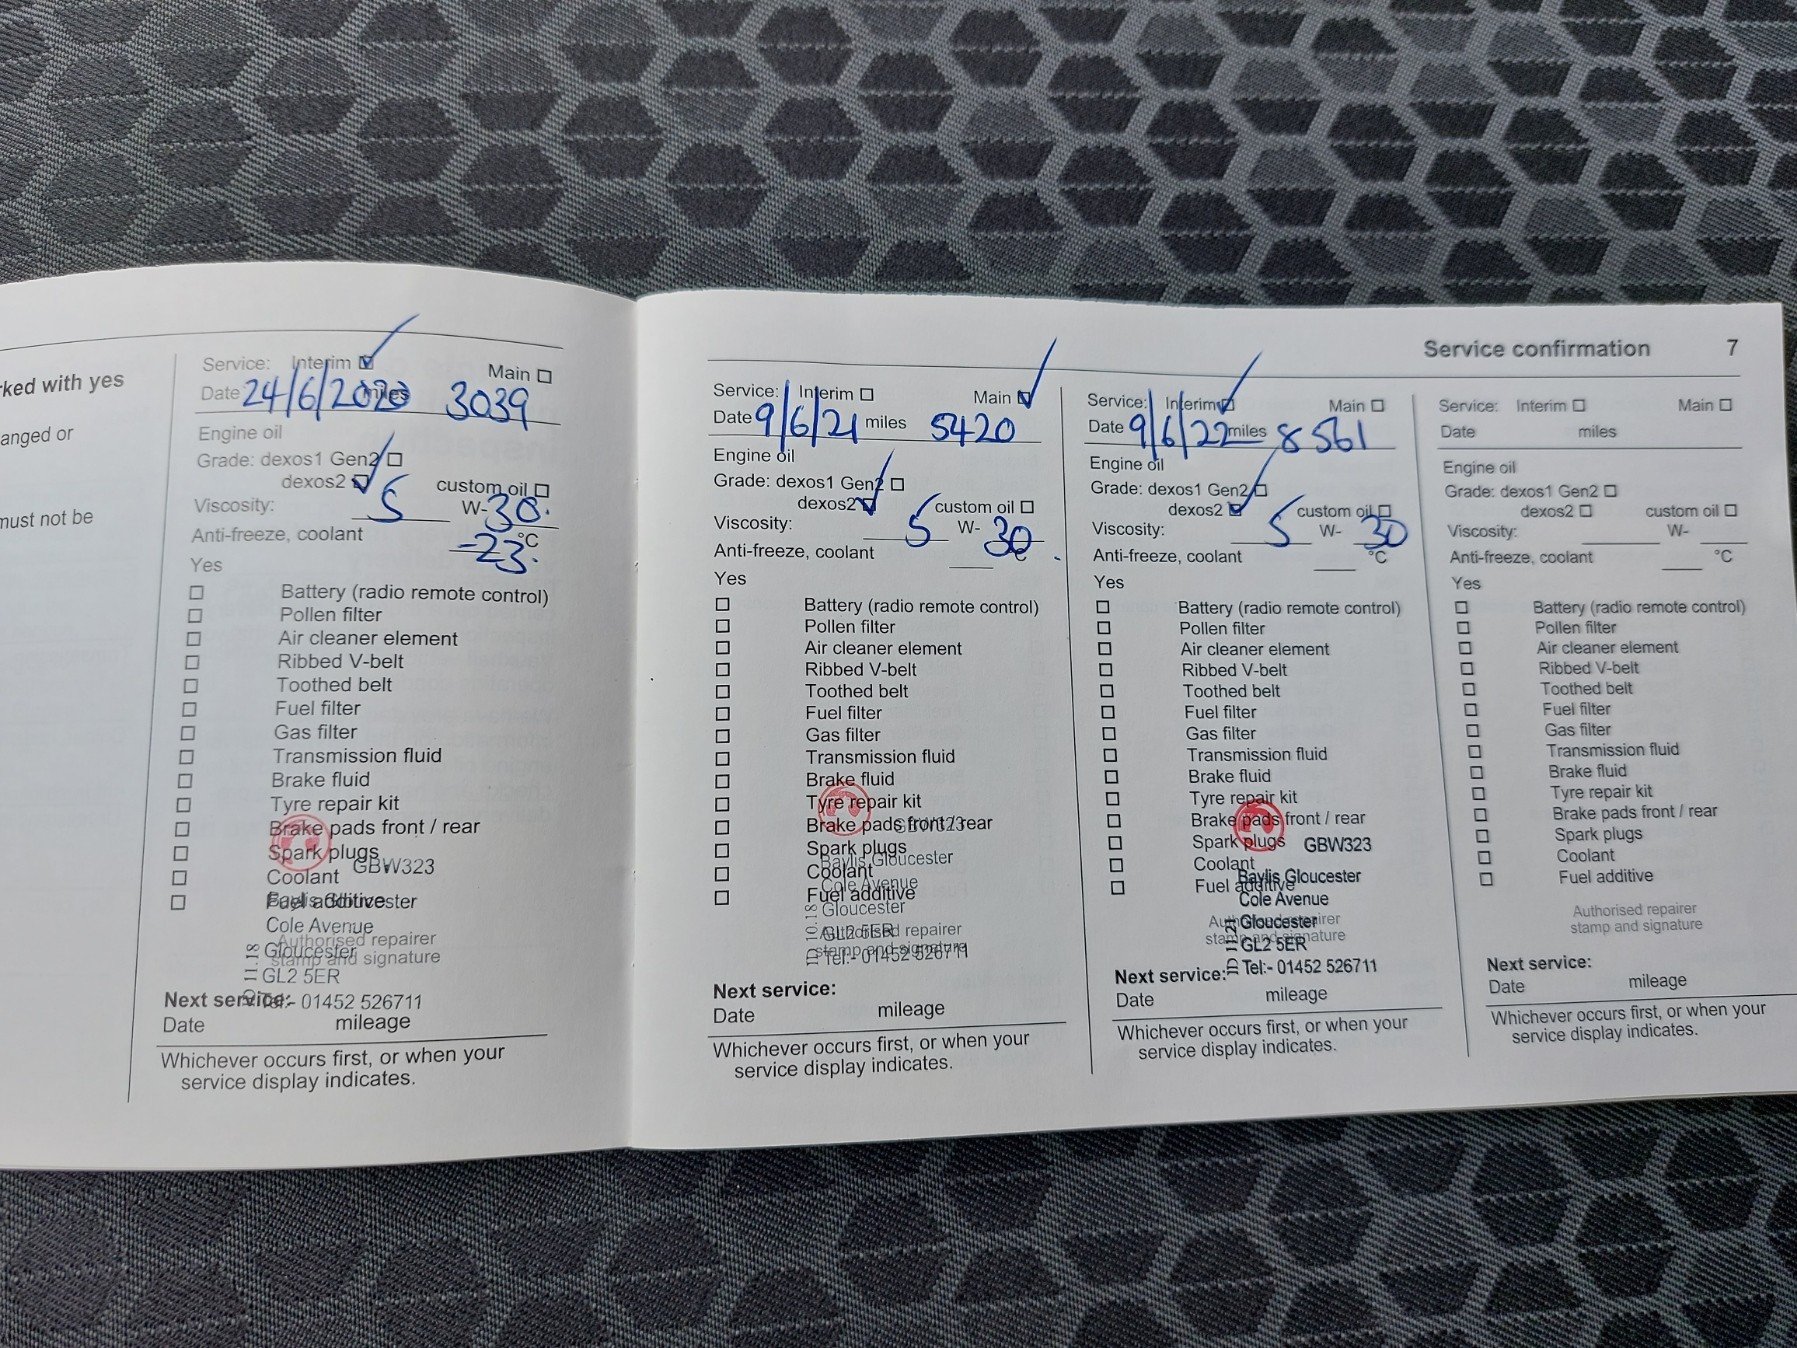 Service confirmation 7
rked with yes
anged or
must not be
Service: Interim Main
Date 24/6/2020 miles 3039
Engine oil
Grade: dexos1 Gen2
dexos2 custom oil
Viscosity: 5 W-30
Anti-freeze, coolant -23 °C
Yes
Battery (radio remote control)
Pollen filter
Air cleaner element
Ribbed V-belt
Toothed belt
Fuel filter
Gas filter
Transmission fluid
Brake fluid
Tyre repair kit
Brake pads front / rear
Spark plugs
GBW323
Coolant
Fuel additive
Baylis Gloucester
Cole Avenue
Authorised repairer
Gloucester
stamp and signature
GL2 5ER
Next service:
Tel:- 01452 526711
Date mileage
Whichever occurs first, or when your
service display indicates.
Service: Interim Main
Date 9/6/21 miles 5420
Engine oil
Grade: dexos1 Gen2
dexos2 custom oil
Viscosity: 5 W-30
Anti-freeze, coolant °C
Yes
Battery (radio remote control)
Pollen filter
Air cleaner element
Ribbed V-belt
Toothed belt
Fuel filter
Gas filter
Transmission fluid
Brake fluid
Tyre repair kit
Brake pads front / rear
GBW323
Spark plugs
Baylis Gloucester
Coolant
Cole Avenue
Fuel additive
Gloucester
Authorised repairer
GL2 5ER
stamp and signature
Tel:- 01452 526711
Next service:
Date mileage
Whichever occurs first, or when your
service display indicates.
Service: Interim Main
Date 9/6/22 miles 8561
Engine oil
Grade: dexos1 Gen2
dexos2 custom oil
Viscosity: 5 W- 30
Anti-freeze, coolant °C
Yes
Battery (radio remote control)
Pollen filter
Air cleaner element
Ribbed V-belt
Toothed belt
Fuel filter
Gas filter
Transmission fluid
Brake fluid
Tyre repair kit
Brake pads front / rear
Spark plugs GBW323
Coolant
Baylis Gloucester
Fuel additive
Cole Avenue
Authorised repairer
Gloucester
stamp and signature
GL2 5ER
Next service:
Tel:- 01452 526711
Date mileage
Whichever occurs first, or when your
service display indicates.
Service: Interim Main
Date miles
Engine oil
Grade: dexos1 Gen2
dexos2 custom oil
Viscosity: W-
Anti-freeze, coolant °C
Yes
Battery (radio remote control)
Pollen filter
Air cleaner element
Ribbed V-belt
Toothed belt
Fuel filter
Gas filter
Transmission fluid
Brake fluid
Tyre repair kit
Brake pads front / rear
Spark plugs
Coolant
Fuel additive
Authorised repairer
stamp and signature
Next service:
Date mileage
Whichever occurs first, or when your
service display indicates.